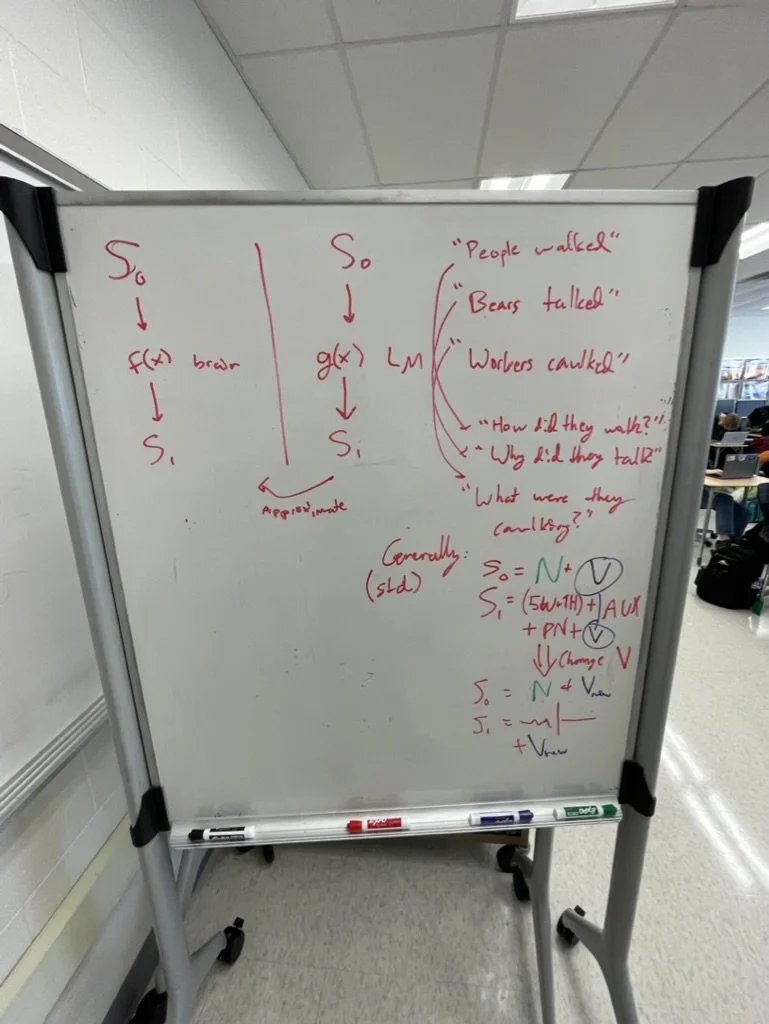 S₀
↓
f(x) brain
↓
S₁
S₀
↓
g(x) LM
↓
S₁
Approximate
"People walked"
"Bears talked"
"Workers caulked"
"How did they walk?"
"Why did they talk?"
"What were they
caulking?"
Generally:
(std)
S₀ = N + V
S₁ = (5W+1H) + AUX
+ PN + V
⇓ Change V
S₀ = N + Vnew
S₁ =
+ Vnew
EXPO